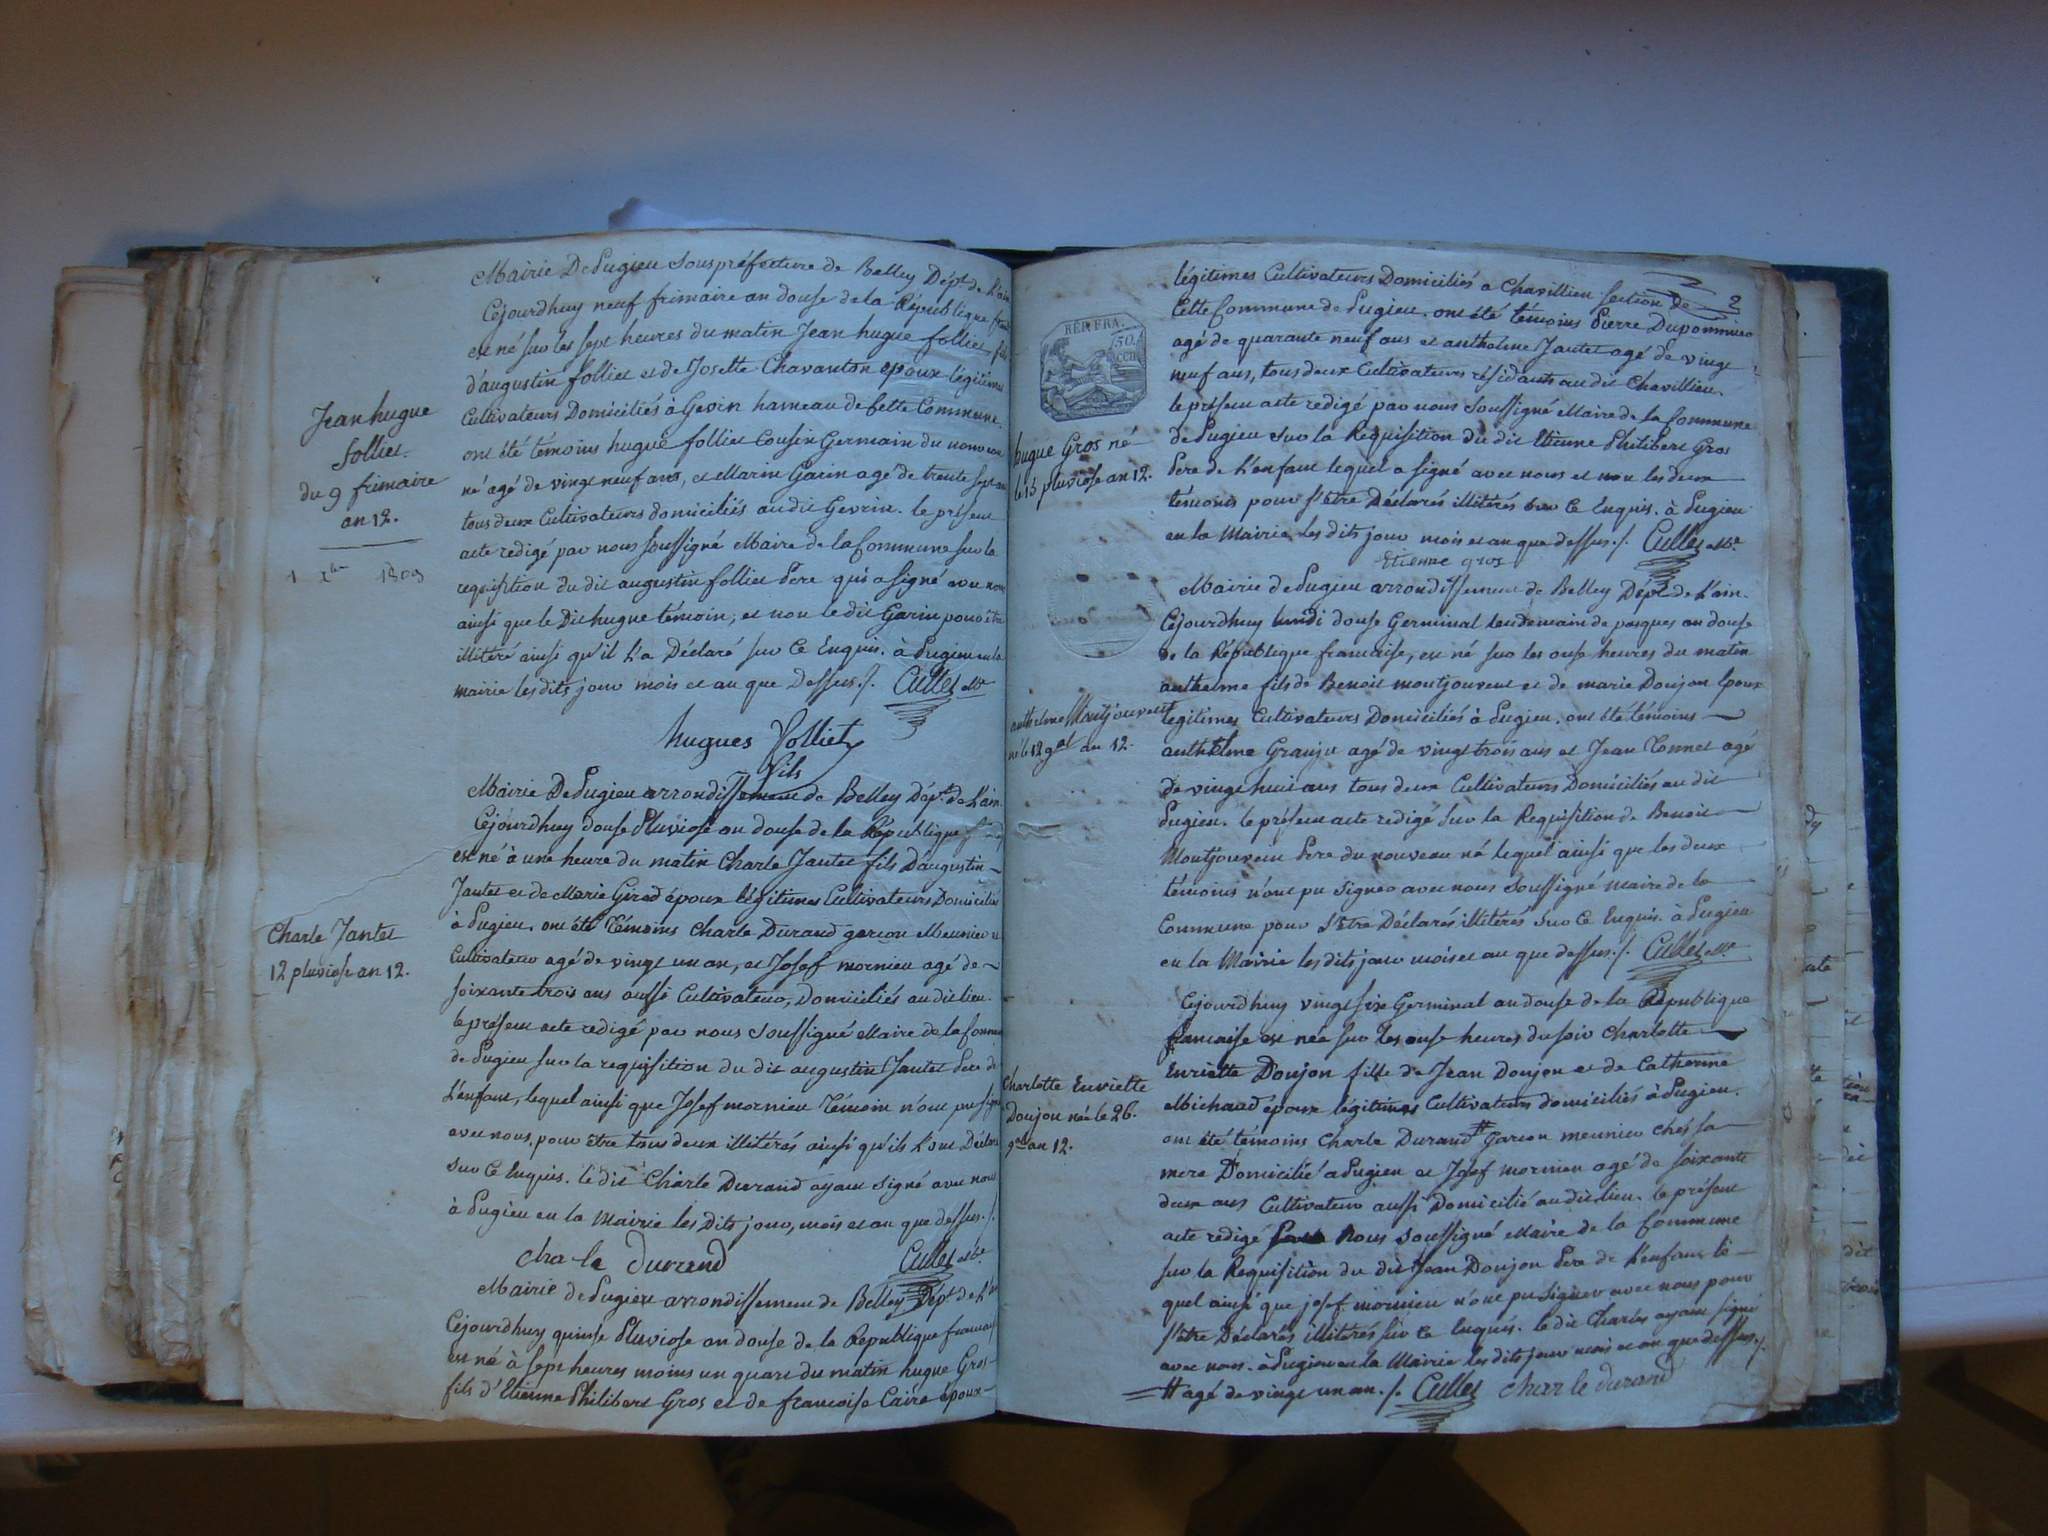 Mairie De Lugieu Souspréfecture de Belley Dépt. de L'ain
Cejourdhuy neuf frimaire an douse de la République
est né sur les sept heures du matin Jean hugue folliet fils
d'augustin folliet et de Josette Chavanton epoux légitimes
Cultivateurs Domiciliés à Gevrin hameau de Cette Commune.
ont été témoins hugue folliet Cousin Germain du nouveau
né agé de vingt neuf ans, et Marin Garin agé de trente sept ans
tous deux Cultivateurs domiciliés audit Gevrin. le présent
acte redigé par nous soussigné Maire de la Commune sur la
requisition du dit augustin folliet Pere qui a signé avec nous
ainsi que le Dit hugue témoin, et non le dit Garin pour être
illitéré ainsi qu'il l'a Déclaré sur Ce Enquis. à Lugieu en la
mairie les dits jour mois et an que Dessus./. Cullet Mre
hugues Folliet
fils
Jean hugue
folliet
du 9 frimaire
an 12.
1 Xbre 1803
Mairie De Lugieu arrondissement de Belley Dépt. de L'ain.
Cejourdhuy douse Pluviose an douse de la République
est né à une heure du matin Charle Jantet fils D'augustin
Jantet et de Marie Girod époux légitimes Cultivateurs Domiciliés
à Lugieu. ont été Témoins Charle Durand garcon Meunier et
Cultivateur agé de vingt un an, et Josef mornieu agé de
soixante trois ans aussi Cultivateur, Domiciliés audit lieu.
le présent acte redigé par nous soussigné Maire de la Commune
de Lugieu sur la requisition du dit augustin Jantet Pere de
L'enfant, lequel ainsi que Josef mornieu Témoin n'ont pu signer
avec nous, pour être tous deux illitérés ainsi qu'ils L'ont Déclaré
sur Ce Enquis. le dit Charle Durand ayant signé avec nous
à Lugieu en la Mairie les Dits jour, mois et an que dessus./.
cha le durand Cullet Mre
Charle Jantet
12 pluviose an 12.
Mairie de Lugieu arrondissement de Belley Dépt de L'ain
Cejourdhuy quinse Pluviose an douse de la République francaise
est né à sept heures moins un quart du matin hugue Gros
fils d'Etienne Philibert Gros et de francoise Caire epoux
2
légitimes Cultivateurs Domiciliés a Chavillieu section de
Cette Commune de Lugieu. ont été témoins Pierre Dupommier
agé de quarante neuf ans et anthelme Jantet agé de vingt
neuf ans, tous deux Cultivateurs résidants au dit Chavillieu.
le présent acte redigé par nous Soussigné Maire de la Commune
de Lugieu sur la Requisition du dit Etienne Philibert Gros
Pere de L'enfant lequel a signé avec nous et non les deux
témoins pour s'être Déclarés illitérés sur Ce Enquis. à Lugieu
en la Mairie les dits jour mois et an que dessus./. Cullet Mre
Etienne gros
RÉP. FRA.
50.
CEN
hugue Gros né
le 15 pluviose an 12.
Mairie de Lugieu arrondissement de Belley Dépt de L'ain.
Cejourdhuy lundi douse Germinal lendemain de pasques an douse
de la République francaise, est né sur les onse heures du matin
anthelme fils de Benoit montjouvent et de marie Donjon Epoux
légitimes Cultivateurs Domiciliés à Lugieu. ont été témoins
anthelme Granju agé de vingt trois ans et Jean Connet agé
de vingt huit ans tous deux Cultivateurs Domiciliés au dit
Lugieu. le présent acte redigé sur la Requisition de Benoit
Montjouvent Pere du nouveau né lequel ainsi que les deux
témoins n'ont pu signer avec nous soussigné maire de la
Commune pour s'être Déclarés illitérés sur Ce Enquis. à Lugieu
en la Mairie les dits jour mois et an que dessus./. Cullet Mre
anthelme Montjouvent
né le 12 gal an 12.
Cejourdhuy vingt six Germinal an douse de la République
francaise est née sur les onse heures du soir Charlotte
Enriette Donjon fille de Jean Donjon et de Catherine
Michaud époux légitimes Cultivateurs domiciliés à Lugieu.
ont été témoins Charle Durand # Garcon meunier ches sa
mere Domicilié a Lugieu et Josef mornieu agé de soixante
deux ans Cultivateur aussi Domicilié au dit lieu. le présent
acte redigé Nous soussigné Maire de la Commune
sur la Requisition du dit Jean Donjon Pere de L'enfant le
quel ainsi que josef mornieu n'ont pu signer avec nous pour
s'être Déclarés illitérés sur Ce Enquis. le dit Charles ayant signé
avec nous. à Lugieu en la Mairie les dits jour mois et an que dessus./.
# agé de vingt un an./. Cullet char le durand
Charlotte Enriette
Donjon née le 26.
gal an 12.